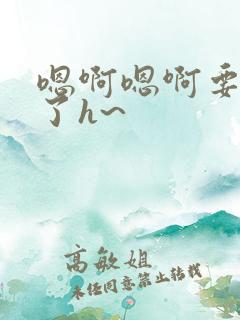 嗯啊嗯啊要
了h~
高敏姐
未经同意禁止转载